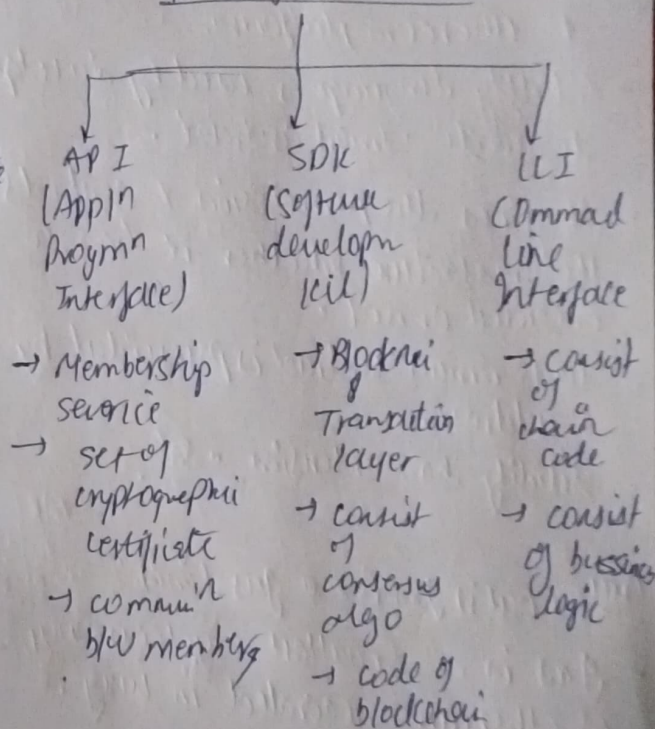 API
(Appln
Progmn
Interface)
→ Membership
service
→ set of
cryptographic
certificate
→ commu'n
b/w members
SDK
(Software
developm
kit)
→ Blockchai
&
Transaction
layer
→ consist
of
consensus
algo
→ code of
blockchai
CLI
(Commad
line
Interface
→ consist
of
chain
code
→ consist
of bussines
logic